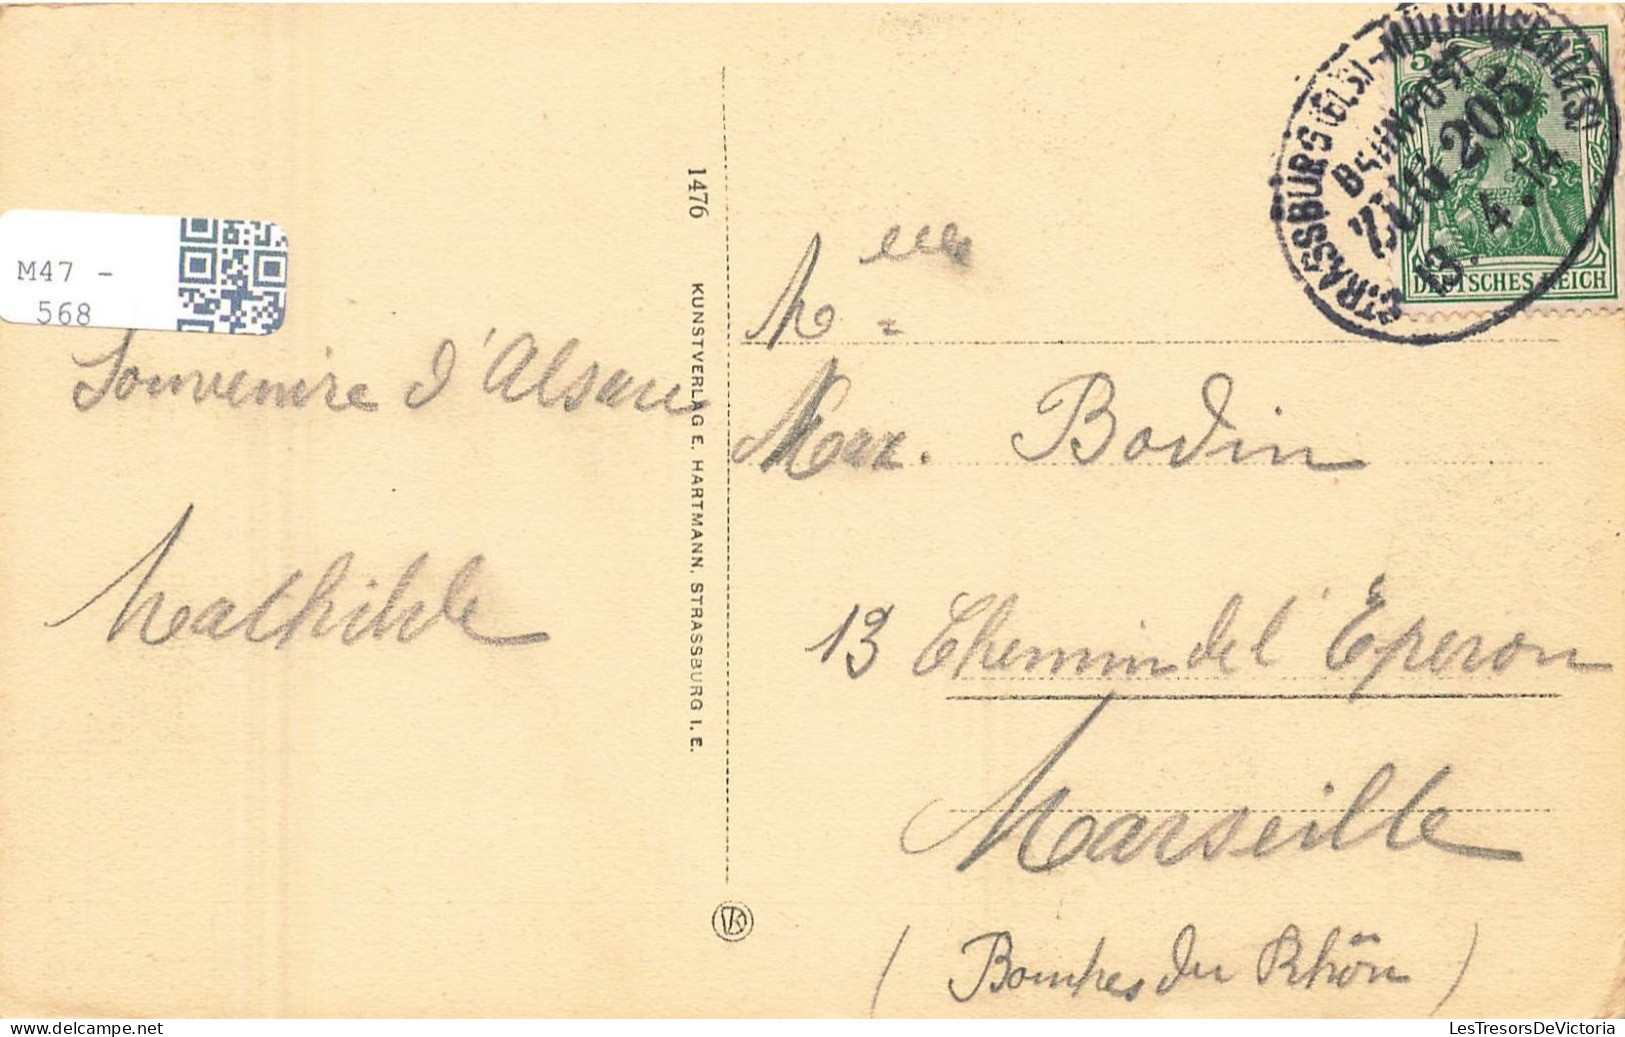 M47 -
568
Souvenire d'Alsace
Mathilde
1476 KUNSTVERLAG E. HARTMANN. STRASSBURG I. E.
STRASSBURG (ELS) - MÜLHAUSEN (ELS)
BAHNPOST
ZUG 205
13. 4. 14
5 5
DEUTSCHES REICH
Melle
Max. Bodin
13 Chemin de l'Éperon
Marseille
(Bouches du Rhôn)
LesTresorsDeVictoria
delcampe.net